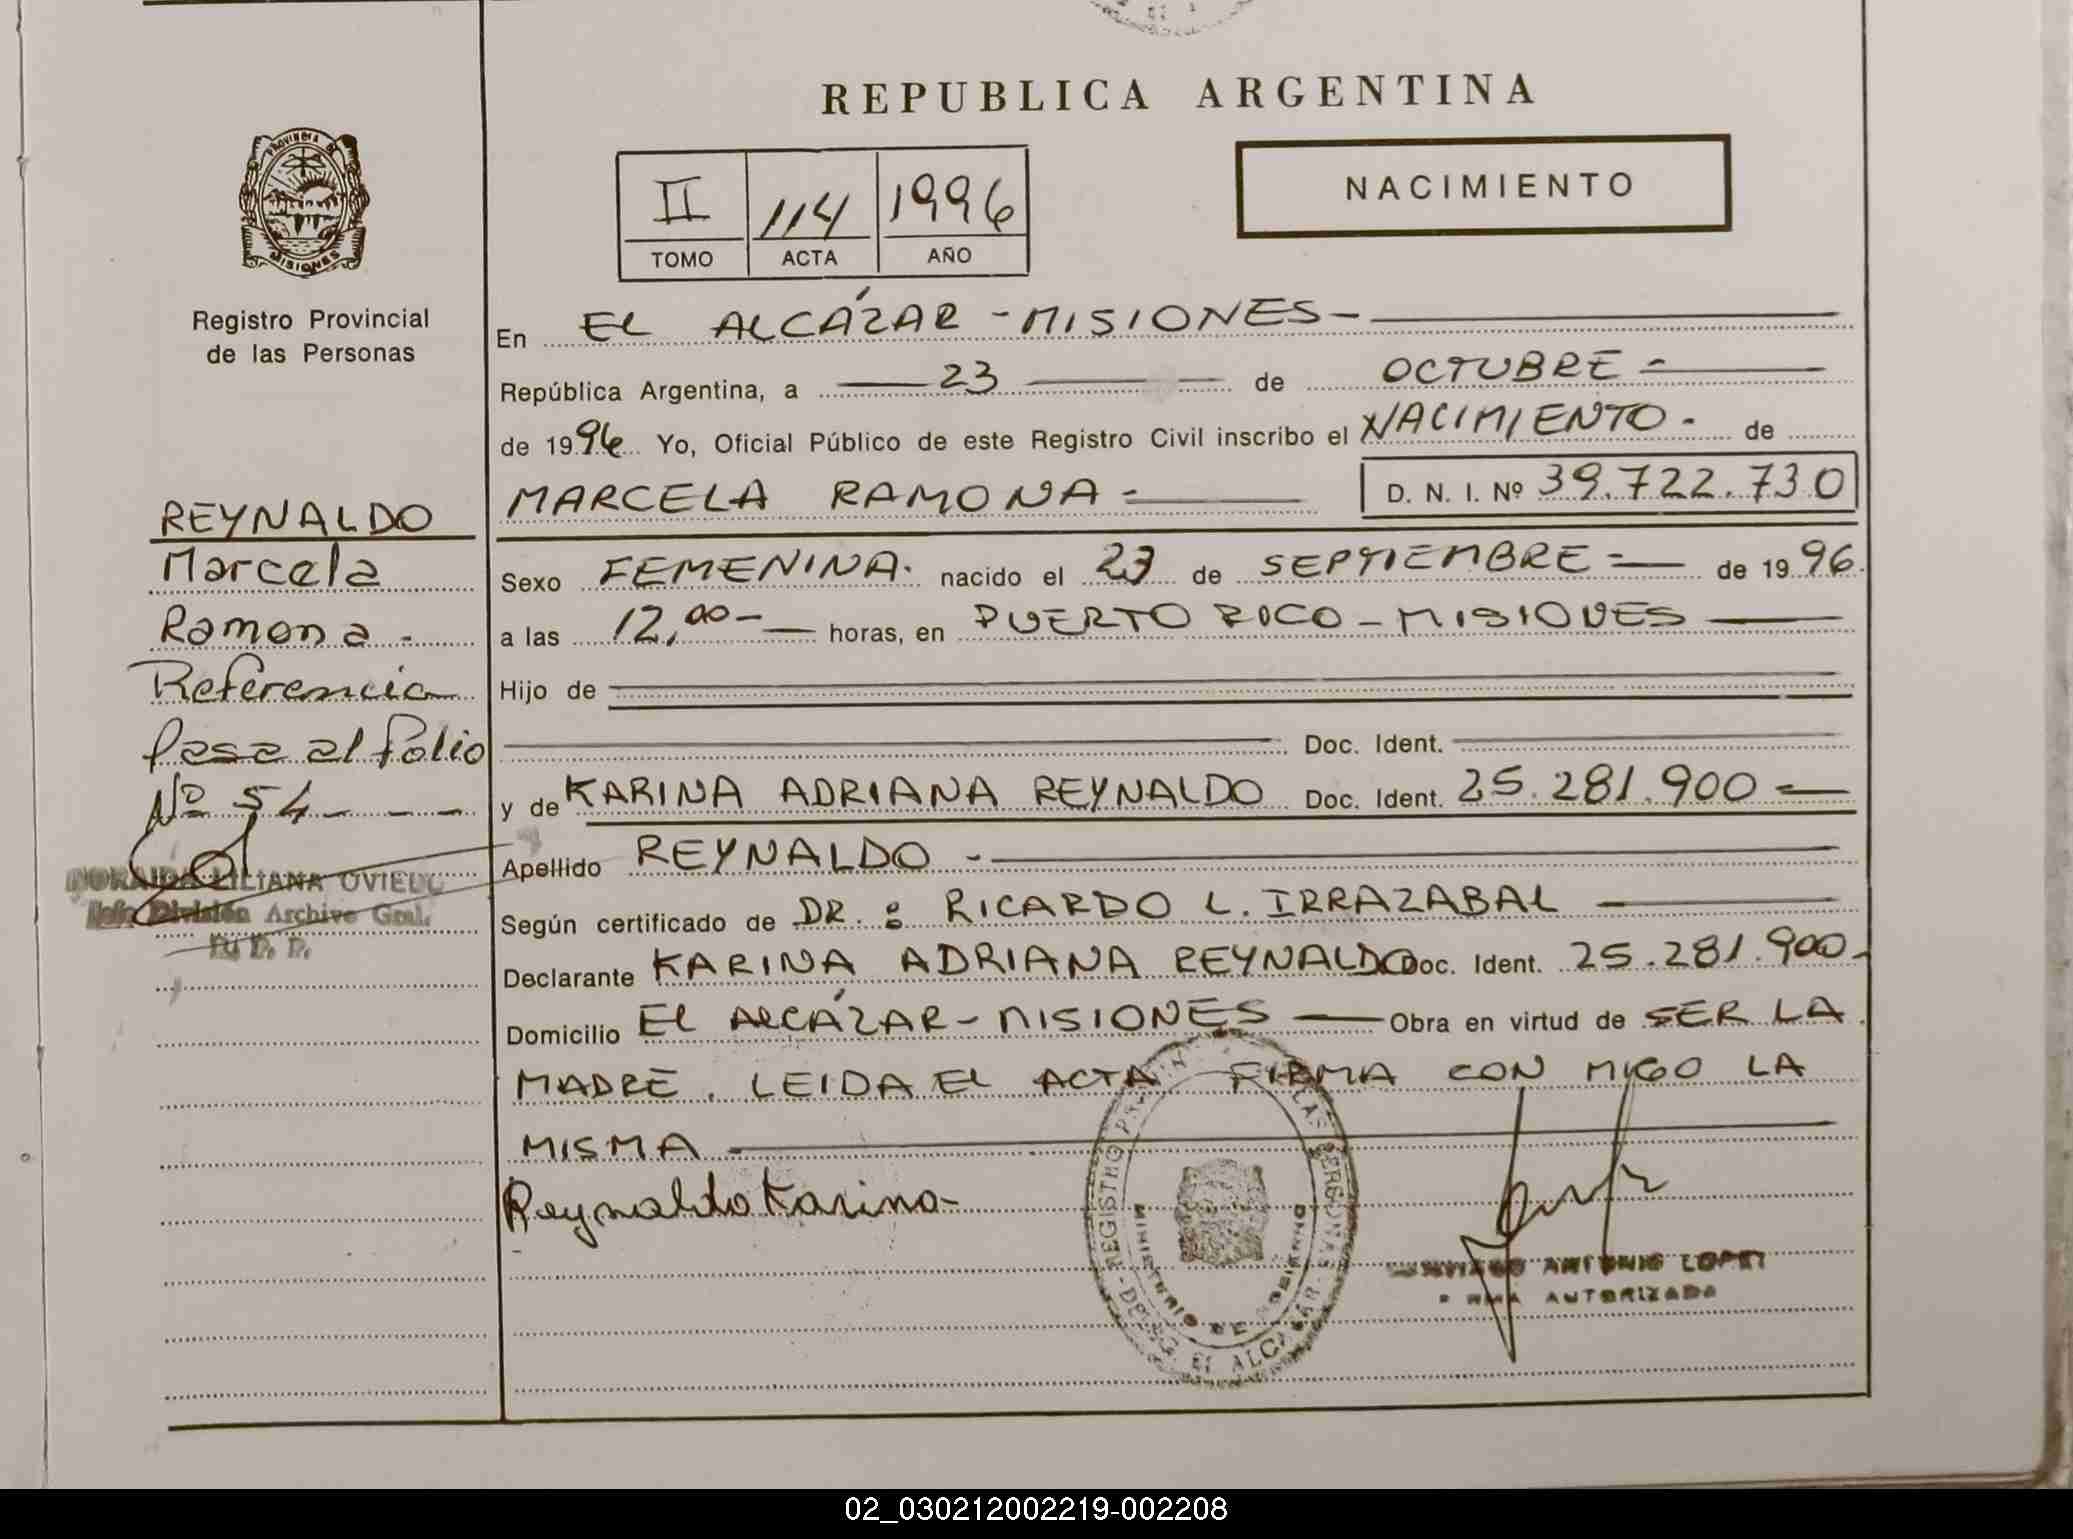 REPUBLICA ARGENTINA
PROVINCIA DE
MISIONES
II 114 1996
TOMO ACTA AÑO
NACIMIENTO
Registro Provincial
de las Personas
En EL ALCÁZAR - MISIONES -
República Argentina, a 23 de OCTUBRE -
de 1996 Yo, Oficial Público de este Registro Civil inscribo el NACIMIENTO - de
MARCELA RAMONA - D. N. I. Nº 39.722.730
REYNALDO
Marcela
Ramona -
Referencia
Pasa al folio
Nº 54 - - -
LILIANA OVIEDO
Jefe División Archivo Gral.
Sexo FEMENINA. nacido el 23 de SEPTIEMBRE = de 1996.
a las 12,00 - horas, en PUERTO RICO - MISIONES
Hijo de
Doc. Ident.
y de KARINA ADRIANA REYNALDO Doc. Ident. 25.281.900 =
Apellido REYNALDO -
Según certificado de DR. : RICARDO L. IRRAZABAL
Declarante KARINA ADRIANA REYNALDO Doc. Ident. 25.281.900-
Domicilio EL ALCÁZAR - MISIONES Obra en virtud de SER LA
MADRE. LEIDA EL ACTA FIRMA CON MIGO LA
MISMA
Reynaldo Karina-
ANTONIO LOPEZ
FIRMA AUTORIZADA
02_030212002219-002208